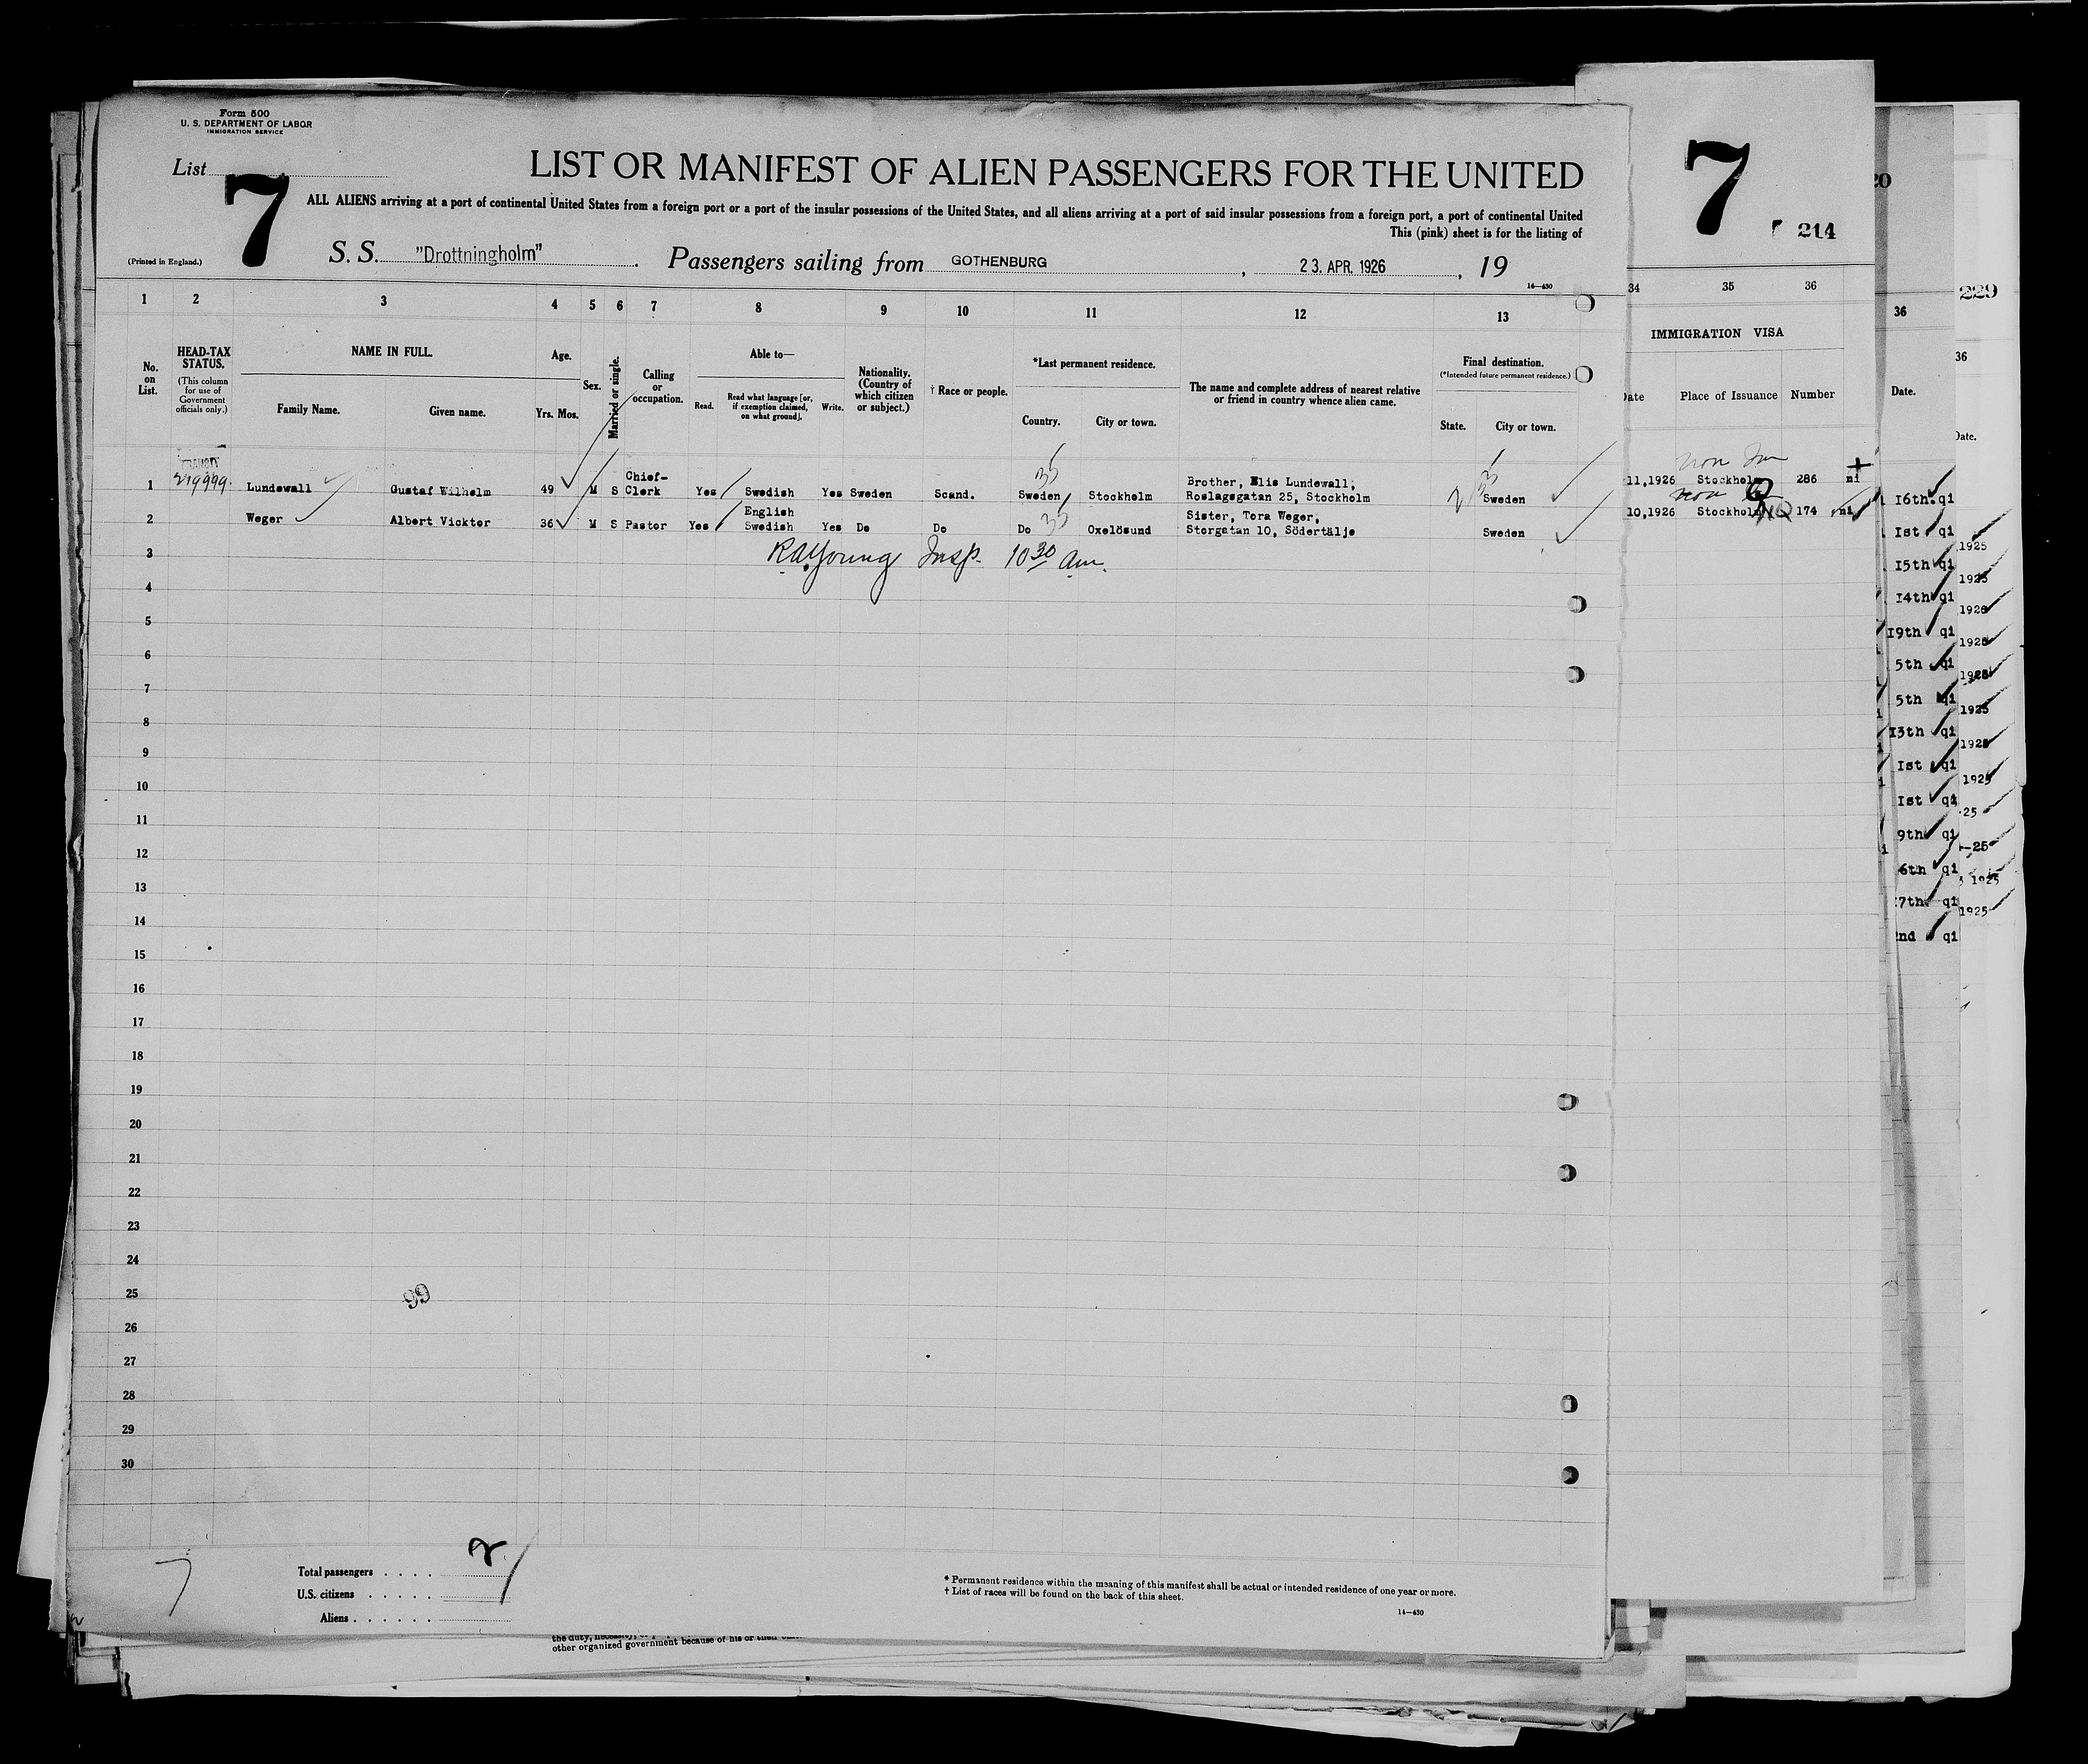 Form 500
U. S. DEPARTMENT OF LABOR
IMMIGRATION SERVICE
List 7
LIST OR MANIFEST OF ALIEN PASSENGERS FOR THE UNITED
ALL ALIENS arriving at a port of continental United States from a foreign port or a port of the insular possessions of the United States, and all aliens arriving at a port of said insular possessions from a foreign port, a port of continental United
This (pink) sheet is for the listing of
(Printed in England.)
S. S. "Drottningholm" Passengers sailing from GOTHENBURG, 23. APR. 1926, 19
14—430
7
214
20
229
1 2 3 4 5 6 7 8 9 10 11 12 13 34 35 36
36
36
No. on List.
HEAD-TAX STATUS.
(This column for use of Government officials only.)
NAME IN FULL.
Family Name. Given name.
Age.
Yrs. Mos.
Sex.
Married or single.
Calling or occupation.
Able to—
Read. Read what language [or, if exemption claimed, on what ground]. Write.
Nationality. (Country of which citizen or subject.)
† Race or people.
*Last permanent residence.
Country. City or town.
The name and complete address of nearest relative or friend in country whence alien came.
Final destination.
(*Intended future permanent residence.)
State. City or town.
IMMIGRATION VISA
Date Place of Issuance Number
Date.
Date.
TRANSIT
1 Lundewall Gustaf Wilhelm 49 M S Chief-Clerk Yes Swedish Yes Sweden Scand. Sweden Stockholm Brother, Elis Lundewall, Roslagsgatan 25, Stockholm Sweden 11,1926 Stockholm 286 ni
2 Weger Albert Vicktor 36 M S Pastor Yes English Swedish Yes Do Do Do Oxelösund Sister, Tora Weger, Storgatan 10, Södertälje Sweden 10,1926 Stockholm 174 ni
3 R.A. Young Insp. 10 30 am.
4
5
6
7
8
9
10
11
12
13
14
15
16
17
18
19
20
21
22
23
24
25 99
26
27
28
29
30
I6th. qi
Ist qi
I5th qi
I4th qi
I9th qi
5th qi
5th qi
I3th qi
Ist qi
Ist qi
9th qi
6th qi
7th qi
2nd qi
1925
1925
1926
1925
1925
1925
1925
1925
25
-25
1925
1925
7
Total passengers . . . . 2
U.S. citizens . . . . .
Aliens . . . . . .
* Permanent residence within the meaning of this manifest shall be actual or intended residence of one year or more.
† List of races will be found on the back of this sheet.
14—430
other organized government because of his or their